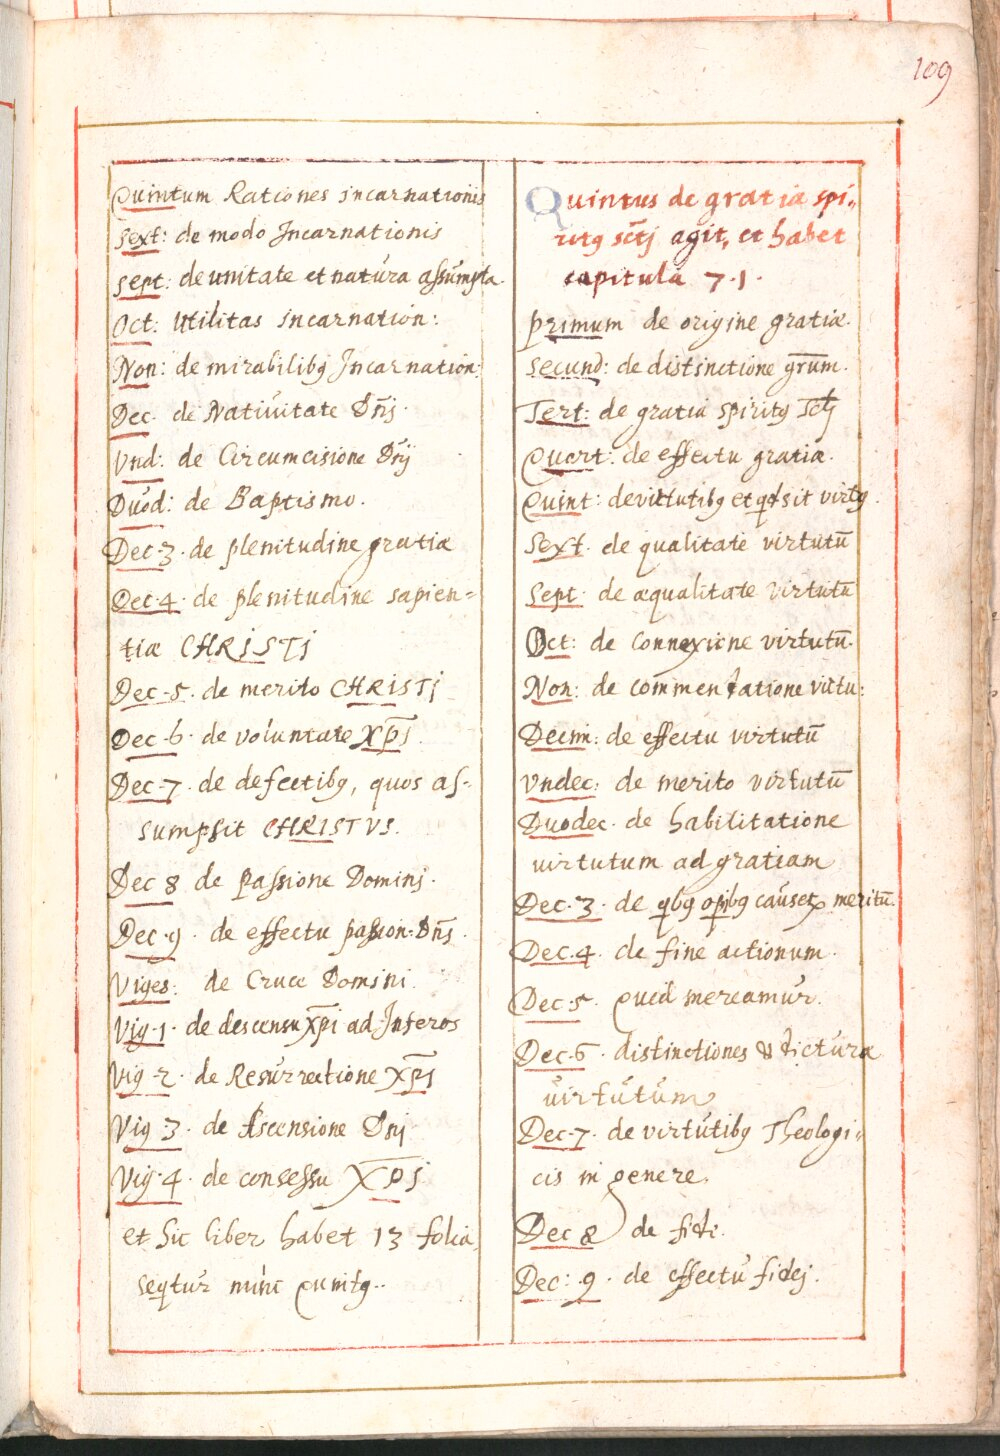 109
Quintum Rationes incarnationis
Sext: de modo Incarnationis
Sept: de unitate et natura assumpta.
Oct: Utilitas incarnation:
Non: de mirabilibꝰ Incarnation:
Dec. de Nativitate Dñj.
Vnd: de Circumcisione Dñj
Duod: de Baptismo.
Dec.3. de plenitudine gratiæ
Dec.4. de plenitudine sapien=
tiæ CHRISTJ
Dec.5. de merito CHRISTJ
Dec.6. de voluntate Xp̄j.
Dec.7. de defectibꝰ, quos as=
sumpsit CHRISTVS.
Dec 8 de Passione Dominj.
Dec.9. de effectu passion: Dñj.
Viges: de Cruce Domini.
Vig.1. de descensu Xp̄i ad Inferos
Vig.2. de Resurrectione Xp̄j
Vig.3. de Ascensione Dñj
Vig.4. de consessu Xp̄j
et hic liber habet 13 folia,
seqtur nunc quintꝰ..
Quintus de gratia spi=
ritꝰ sctj agit, et habet
capitula 7.1.
primum de origine gratiæ.
Secund: de distinctione grum.
Tert: de gratia spiritꝰ sctj
Quart: de effectu gratiæ.
Quint: de virtutibꝰ et qd sit virtꝰ.
Sext. de qualitate virtutū
Sept. de æqualitate virtutū
Oct: de connexione virtutū.
Non: de commendatione virtu:
Decim: de effectu virtutū
Vndec: de merito virtutū
Duodec. de habilitatione
virtutum ad gratiam
Dec.3. de qbꝰ opibꝰ causet meritū.
Dec.4. de fine actionum.
Dec.5. quid mereamur.
Dec.6. distinctiones &
virtutum
Dec.7. de virtutibꝰ Theologi=
cis in genere.
Dec 8 de fide.
Dec: 9. de effectu fidej.